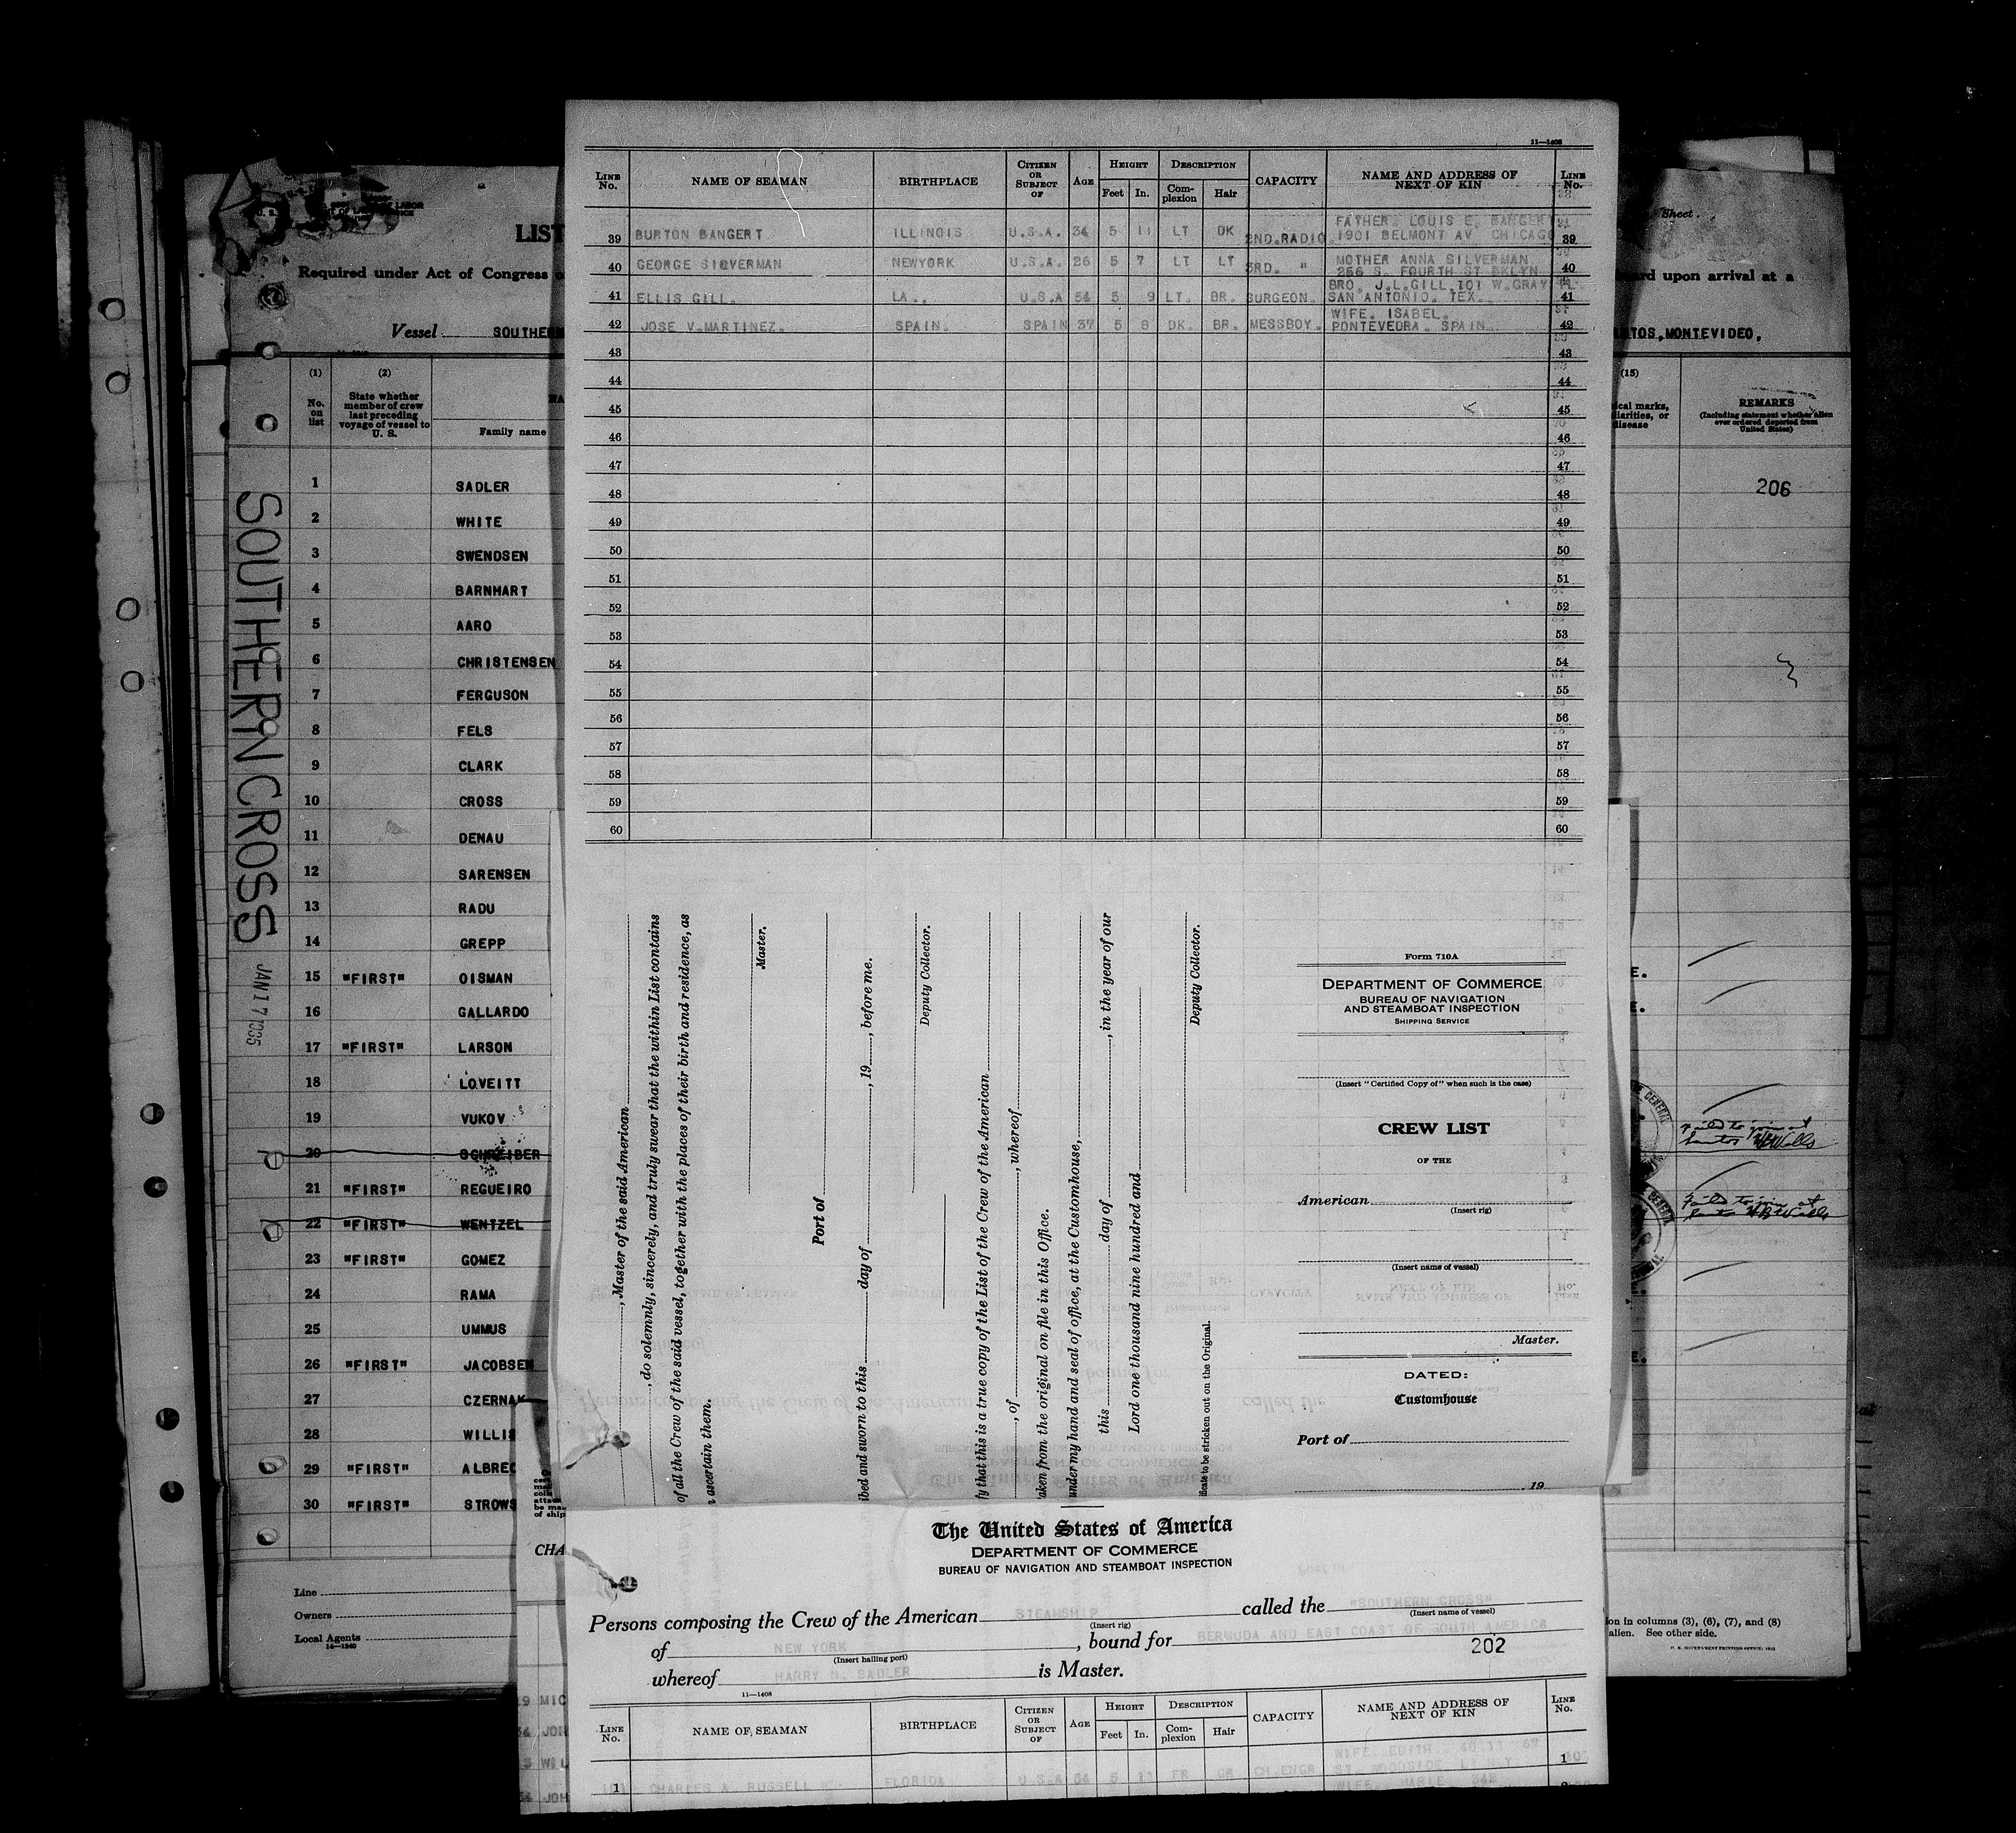 11—1408
LINE No. NAME OF SEAMAN BIRTHPLACE CITIZEN OR SUBJECT OF AGE HEIGHT Feet In. DESCRIPTION Complexion Hair CAPACITY NAME AND ADDRESS OF NEXT OF KIN LINE No.
39 BURTON BANGERT ILLINOIS U.S.A. 34 5 11 LT DK 2ND.RADIO. FATHER. LOUIS E. BANGERT 1901 BELMONT AV CHICAGO 39
40 GEORGE SILVERMAN NEWYORK U.S.A. 26 5 7 LT LT 3RD. " MOTHER ANNA SILVERMAN 256 S. FOURTH ST BKLYN 40
41 ELLIS GILL. LA.. U.S.A 54 5 9 LT. BR. SURGEON. BRO. J.L.GILL.101 W.GRAY PL. SAN ANTONIO. TEX. 41
42 JOSE V.MARTINEZ. SPAIN. SPAIN 37 5 8 DK. BR. MESSBOY. WIFE. ISABEL. PONTEVEDRA. SPAIN. 42
43 43
44 44
45 45
46 46
47 47
48 48
49 49
50 50
51 51
52 52
53 53
54 54
55 55
56 56
57 57
58 58
59 59
60 60
, Master of the said American
, do solemnly, sincerely, and truly swear that the within List contains
of all the Crew of the said vessel, together with the places of their birth and residence, as
ascertain them.
Master.
Port of
ibed and sworn to this day of , 19 , before me.
Deputy Collector.
fy that this is a true copy of the List of the Crew of the American
, of , whereof
aken from the original on file in this Office.
under my hand and seal of office, at the Customhouse,
this day of , in the year of our
Lord one thousand nine hundred and
Deputy Collector.
ificate to be stricken out on the Original.
Form 710A
DEPARTMENT OF COMMERCE
BUREAU OF NAVIGATION
AND STEAMBOAT INSPECTION
SHIPPING SERVICE
(Insert "Certified Copy of" when such is the case)
CREW LIST
OF THE
American
(Insert rig)
(Insert name of vessel)
Master.
DATED:
Customhouse
Port of
, 19
The United States of America
DEPARTMENT OF COMMERCE
BUREAU OF NAVIGATION AND STEAMBOAT INSPECTION
Persons composing the Crew of the American STEAMSHIP called the "SOUTHERN CROSS"
(Insert rig) (Insert name of vessel)
of NEW YORK , bound for BERMUDA AND EAST COAST OF SOUTH AMERICA
(Insert hailing port) 202
whereof HARRY N. SADLER is Master.
11—1408
LINE No. NAME OF SEAMAN BIRTHPLACE CITIZEN OR SUBJECT OF AGE HEIGHT Feet In. DESCRIPTION Complexion Hair CAPACITY NAME AND ADDRESS OF NEXT OF KIN LINE No.
1 CHARLES A. RUSSELL FLORIDA U.S.A 54 5 FR GR CH.ENGR WIFE. EDITH ST. WOODSIDE 1
LIST
Required under Act of Congress
Vessel SOUTHERN
(1) (2)
No. on list State whether member of crew last preceding voyage of vessel to U. S. Family name
1 SADLER
2 WHITE
3 SWENDSEN
4 BARNHART
5 AARO
6 CHRISTENSEN
7 FERGUSON
8 FELS
9 CLARK
10 CROSS
11 DENAU
12 SARENSEN
13 RADU
14 GREPP
15 "FIRST" OISMAN
16 GALLARDO
17 "FIRST" LARSON
18 LOVEITT
19 VUKOV
20 SCHREIBER
21 "FIRST" REGUEIRO
22 "FIRST" WENTZEL
23 "FIRST" GOMEZ
24 RAMA
25 UMMUS
26 "FIRST" JACOBSEN
27 CZERNAK
28 WILLIS
29 "FIRST" ALBREC
30 "FIRST" STROWS
Line
Owners
Local Agents
14—1240
SOUTHERN CROSS
JAN 17 1935
CHA
of ship
MIC
JOH
WIL
JOH
Sheet
ard upon arrival at a
NTOS,MONTEVIDEO,
(15)
cal marks,
liarities, or
disease
REMARKS
(Including statement whether alien ever ordered deported from United States)
206
E.
E.
Failed to join at
Santos
Failed to join at
Santos
E.
E.
ion in columns (3), (6), (7), and (8)
alien. See other side.